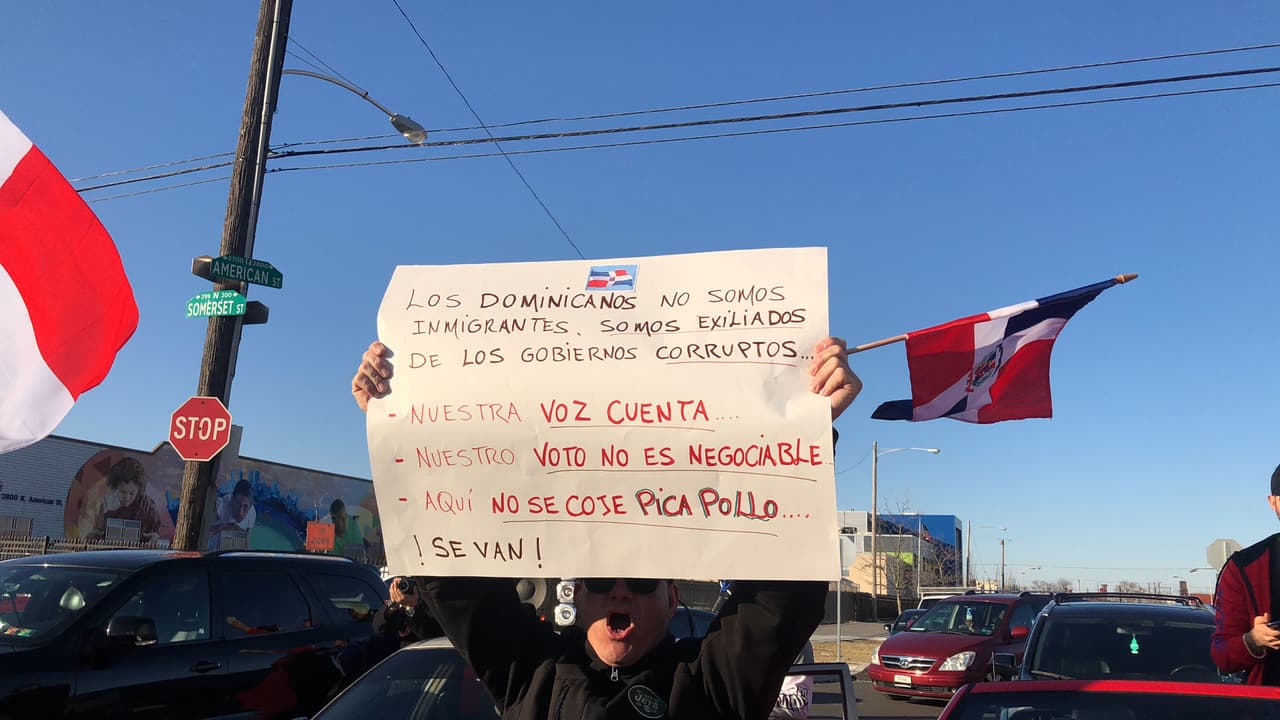 2700 N 2800
AMERICAN ST
299 N 200
SOMERSET ST
STOP
2800 N. American St.
LOS DOMINICANOS NO SOMOS
INMIGRANTES. SOMOS EXILIADOS
DE LOS GOBIERNOS CORRUPTOS...
- NUESTRA VOZ CUENTA....
- NUESTRO VOTO NO ES NEGOCIABLE..
- AQUÍ NO SE COJE PICA POLLO....
! SE VAN !
JETS